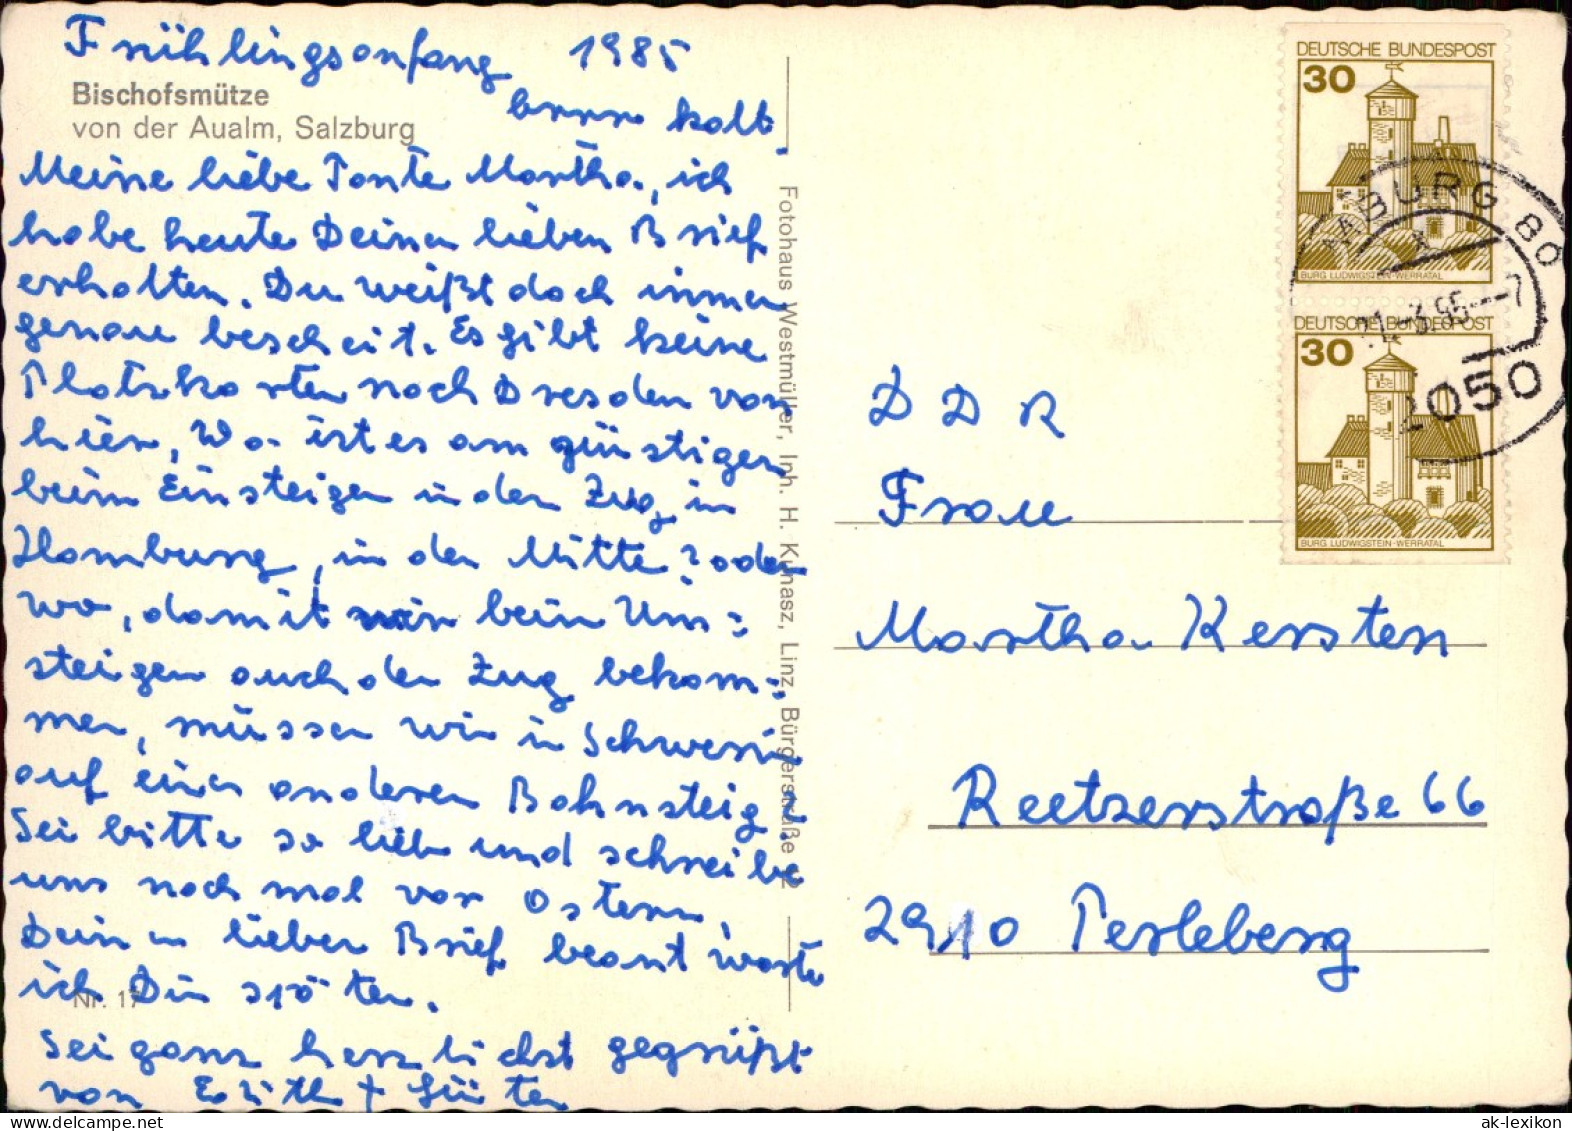 Frühlingsanfang 1985
brrrr kalt.
Bischofsmütze
von der Aualm, Salzburg
Meine liebe Tante Martha, ich
habe heute Deinen lieben Brief
erhalten. Du weißt doch immer
genau bescheit. Es gibt keine
Platzkarten nach Dresden von
hier, Wo ist es am günstigen
beim Einsteigen in den Zug, in
Hamburg, in der Mitte? oder
wo, damit wir beim Um=
steigen auch den Zug bekom=
men, müssen wir in Schwerin
auf einen anderen Bahnsteig?
Sei bitte so lieb und schreibe
uns noch mal vor Ostern,
Deinen lieben Brief beantworte
ich Dir später.
Nr. 17
Sei ganz herzlichst gegrüßt
von Edith + Günter
Fotohaus Westmüller, Inh. H. Kunasz, Linz, Bürgerstraße
DDR
Frau
Martha Kersten
Reetzerstraße 66
2910 Perleberg
DEUTSCHE BUNDESPOST
30
BURG LUDWIGSTEIN·WERRATAL
DEUTSCHE BUNDESPOST
30
BURG LUDWIGSTEIN·WERRATAL
BURG 80
21.-3.85--7
2050
ak-lexikon